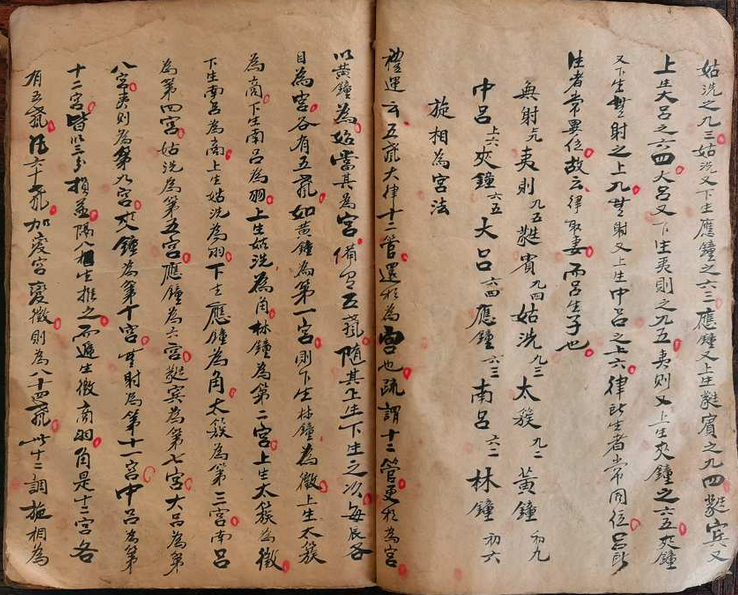 姑洗之九三姑洗又下生應鐘之六三應鐘又上生蕤賓之九四蕤賓又
上生大呂之六四大呂又下生夷則之九五夷則又上生夾鐘之六五夾鐘
又下生無射之上九無射又上生中呂之上六律所生者常同位呂所
生者常異位故云律取妻而呂生子也
無射上九夷則九五蕤賓九四姑洗九三太簇九二黃鐘初九
中呂上六夾鐘六五大呂六四應鐘六三南呂六二林鐘初六
旋相為宮法
禮運云五聲六律十二管還相為宮也疏謂十二管更相為宮
以黃鐘為始當其為宮備有五聲隨其上生下生之次每辰各
自為宮各有五聲如黃鐘為第一宮則下生林鐘為徵上生太簇
為商下生南呂為羽上生姑洗為角林鐘為第二宮上生太簇為徵
下生南呂為商上生姑洗為羽下生應鐘為角太簇為第三宮南呂
為第四宮姑洗為第五宮應鐘為六宮蕤賓為第七宮大呂為第
八宮夷則為第九宮夾鐘為第十宮無射為第十一宮中呂為第
十二宮皆以三分損益隔八相生推之而遞生徵商羽角是十二宮各
有五聲凡六十聲加變宮變徵則為八十四聲此十二調旋相為